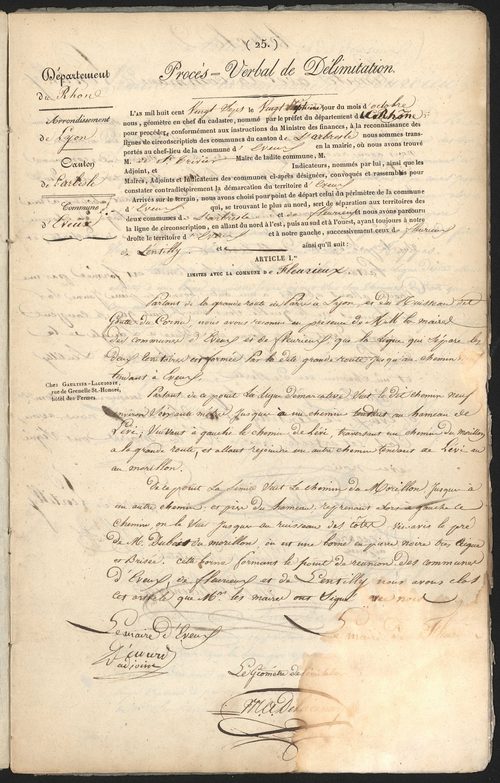 ( 25. )
Procès-Verbal de Délimitation.
Département
du Rhône
Arrondissement
de Lyon
Canton
de l'arbresle
Commune
d'Eveux
L'an mil huit cent Vingt le Vingt jour du mois d'octobre
nous, géomètre en chef du cadastre, nommé par le préfet du département du Rhône
pour procéder, conformément aux instructions du Ministre des finances, à la reconnaissance des
lignes de circonscription des communes du canton de L'arbresle nous sommes trans-
portés au chef-lieu de la commune d'Eveux en la mairie, où nous avons trouvé
M. de St. Trivier Maire de ladite commune, M.
Adjoint, et Indicateurs, nommés par lui, ainsi que les
Maires, Adjoints et Indicateurs des communes ci-après désignées, convoqués et rassemblés pour
constater contradictoirement la démarcation du territoire d'Eveux
Arrivés sur le terrain, nous avons choisi pour point de départ celui du périmètre de la commune
d'Eveux qui, se trouvant le plus au nord, sert de séparation aux territoires des
deux communes de L'arbresle et de fleurieux nous avons parcouru
la ligne de circonscription, en allant du nord à l'est, puis au sud et à l'ouest, ayant toujours à notre
droite le territoire d'Eveux et à notre gauche, successivement ceux de fleurieux
de Lentilly et ainsi qu'il suit :
ARTICLE I.er
LIMITES AVEC LA COMMUNE DE fleurieux
Partant de la grande route de Paris à Lyon, et du Ruisseau dit
Goutte du Corne, nous avons reconnu en présence de MM. les maires
des communes d'Eveux et de fleurieux que la ligne qui sépare les
deux territoires est formée par la dite grande route jusqu'au chemin
tendant à Eveux
Partant de ce point la ligne démarcative suit le dit chemin neuf
environ mètres jusques à un chemin tendant au hameau de
Lévi, suivant à gauche le chemin de Lévi, traversant un chemin du morillon
à la grande route, et allant rejoindre un autre chemin tendant de Lévi au
au morillon.
De ce point la limite suit le chemin du Morillon jusque à
un autre chemin, et près du hameau, reprenant alors à gauche ce
chemin, on le suit jusque au ruisseau des vis-à-vis le pré
de M. Dubost du morillon, où est une borne en pierre noire très aigue
et brisée, cette borne formant le point de réunion des communes
d'Eveux, de fleurieux et de Lentilly nous avons clos
cet article que Mrs. les maires ont signé avec nous
Le maire d'Eveux
Le maire de
l'adjoint
Le Géomètre
Chez GAULTIER-LAGUIONIE,
rue de Grenelle St.-Honoré,
hôtel des Fermes.